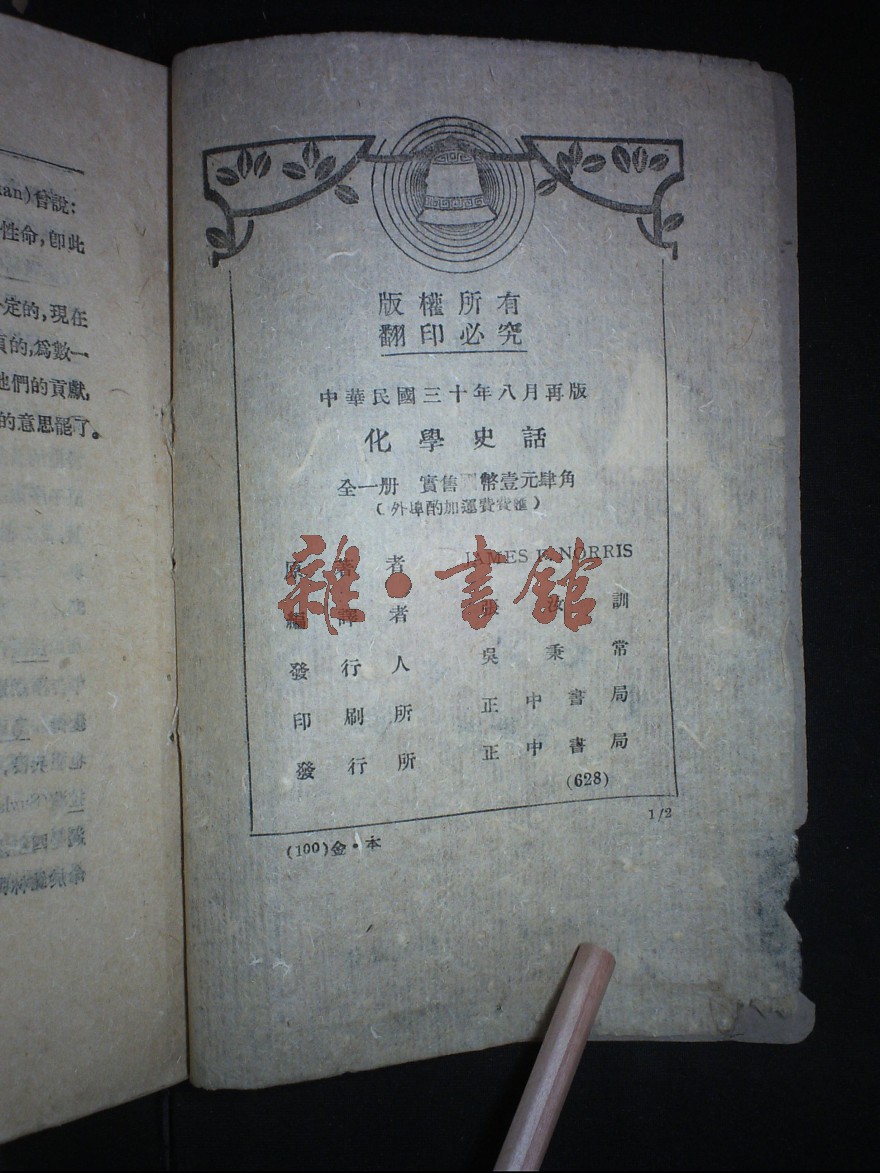 an)曾說:
性命,卽此
定的,現在
的,爲數一
他們的貢獻
的意思罷了。
版權所有
翻印必究
中華民國三十年八月再版
化學史話
全一册 實售 幣壹元肆角
(外埠酌加運費賣匯)
原著者 JAMES F. NORRIS
編譯者 張汝訓
發行人 吳秉常
印刷所 正中書局
發行所 正中書局
(628)
1/2
(100)金·本
雜·書館